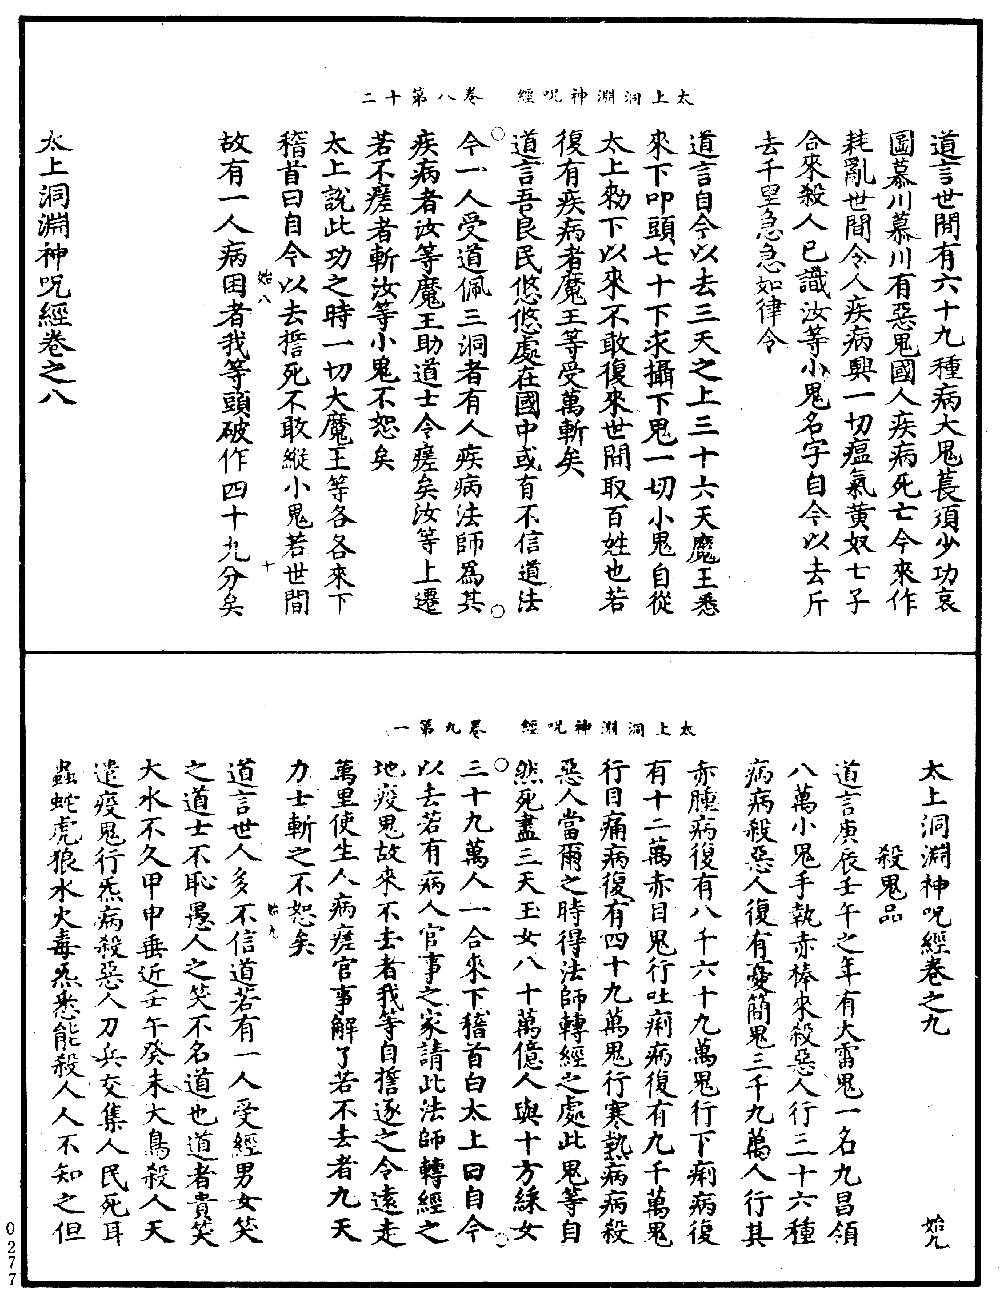 太上洞淵神呪經　卷八第十二
道言世間有六十九種病大鬼萇須少功哀
圖慕川慕川有惡鬼國人疾病死亡今來作
耗亂世間令人疾病興一切瘟氣黄奴七子
合來殺人已識汝等小鬼名字自今以去斤
去千里急急如律令
道言自今以去三天之上三十六天魔王悉
來下叩頭七十下求攝下鬼一切小鬼自從
太上勑下以來不敢復來世間取百姓也若
復有疾病者魔王等受萬斬矣
道言吾良民悠悠處在國中或有不信道法
今一人受道佩三洞者有人疾病法師爲其
疾病者汝等魔王助道士令瘥矣汝等上遷
若不瘥者斬汝等小鬼不恕矣
太上說此功之時一切大魔王等各各來下
稽首曰自今以去誓死不敢縱小鬼若世間
始八　十
故有一人病困者我等頭破作四十九分矣
太上洞淵神呪經卷之八
太上洞淵神呪經　卷九第一
太上洞淵神呪經卷之九　始九
殺鬼品
道言庚辰壬午之年有大雷鬼一名九昌領
八萬小鬼手執赤棒來殺惡人行三十六種
病病殺惡人復有憂簡鬼三千九萬人行其
赤腫病復有八千六十九萬鬼行下痢病復
有十二萬赤目鬼行吐痢病復有九千萬鬼
行目痛病復有四十九萬鬼行寒熱病病殺
惡人當爾之時得法師轉經之處此鬼等自
然死盡三天玉女八十萬億人與十方綵女
三十九萬人一合來下稽首白太上曰自今
以去若有病人官事之家請此法師轉經之
地疫鬼故來不去者我等自擔逐之令遠走
萬里使生人病瘥官事解了若不去者九天
力士斬之不恕矣
始九
道言世人多不信道若有一人受經男女笑
之道士不恥愚人之笑不名道也道者貴笑
大水不久甲申垂近壬午癸未大鳥殺人天
遣疫鬼行炁病殺惡人刀兵交集人民死耳
蟲蛇虎狼水火毒炁悉能殺人人不知之但
0277